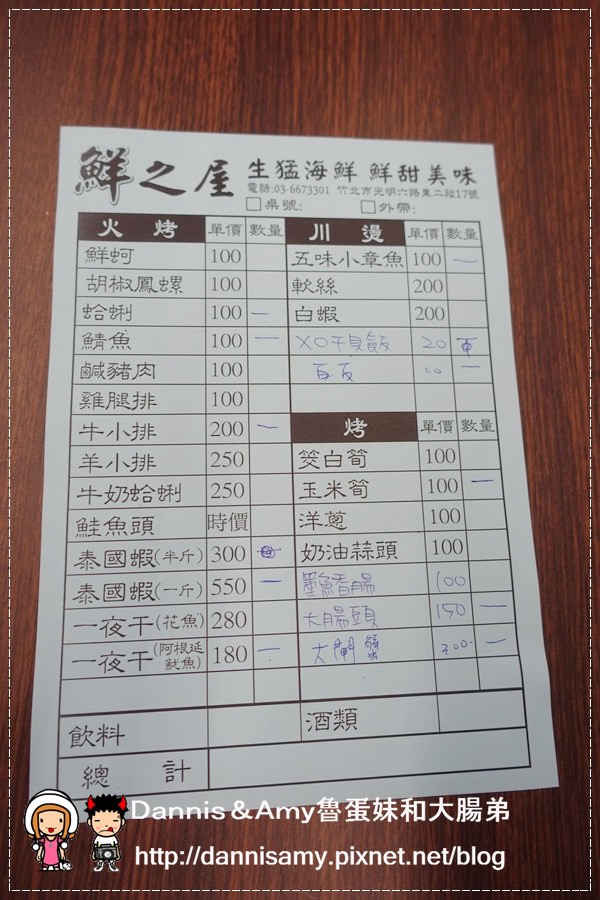 鮮之屋 生猛海鮮 鮮甜美味
電話:03-6673301 竹北市光明六路東二段17號
桌號: 外帶:
火烤 單價 數量 川燙 單價 數量
鮮蚵 100 五味小章魚 100 一
胡椒鳳螺 100 軟絲 200
蛤蜊 100 一 白蝦 200
鯖魚 100 一 XO干貝飯 20
鹹豬肉 100 一
雞腿排 100
牛小排 200 一 烤 單價 數量
羊小排 250 筊白筍 100
牛奶蛤蜊 250 玉米筍 100 一
鮭魚頭 時價 洋蔥 100
泰國蝦(半斤) 300 奶油蒜頭 100
泰國蝦(一斤) 550 一 墨魚香腸 100
一夜干(花魚) 280 大腸頭 150 一
一夜干(阿根廷魷魚) 180 一 大閘蟹 300. 一
飲料 酒類
總計
Dannis&Amy魯蛋妹和大腸弟
http://dannisamy.pixnet.net/blog